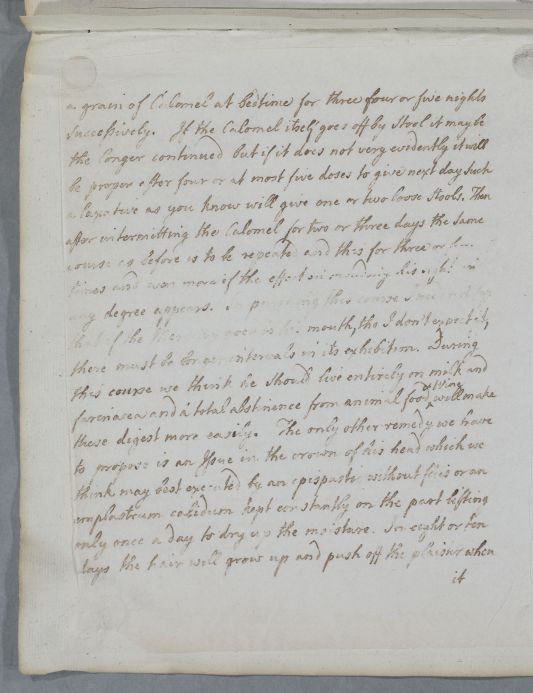 a grain of Calomel at Bedtime for three four or five nights
successively. If the Calomel itself goes off by Stool it may be
the longer continued but if it does not very evidently it will
be proper after four or at most five doses to give next day such
a laxative as you know will give one or two loose Stools. Then
after intermitting the Calomel for two or three days the same
course as before is to be repeated and this for three or
times and even more if the effect in his sight in
any degree appears. In pursuing this course
that if the goes to his mouth, tho I don't expect it,
there must be longer intervals in its exhibition. During
this course we think he should live entirely on milk and
farinacea and a total abstinence from animal food will make
these digest more easily. The only other remedy we have
to propose is an Issue in the crown of his head which we
think may best executed by an epispastic without or an
emplastrum calidum kept constantly on the part lifting
only once a day to dry up the moisture. In eight or ten
days the hair will grow up and push off the plaister when
it